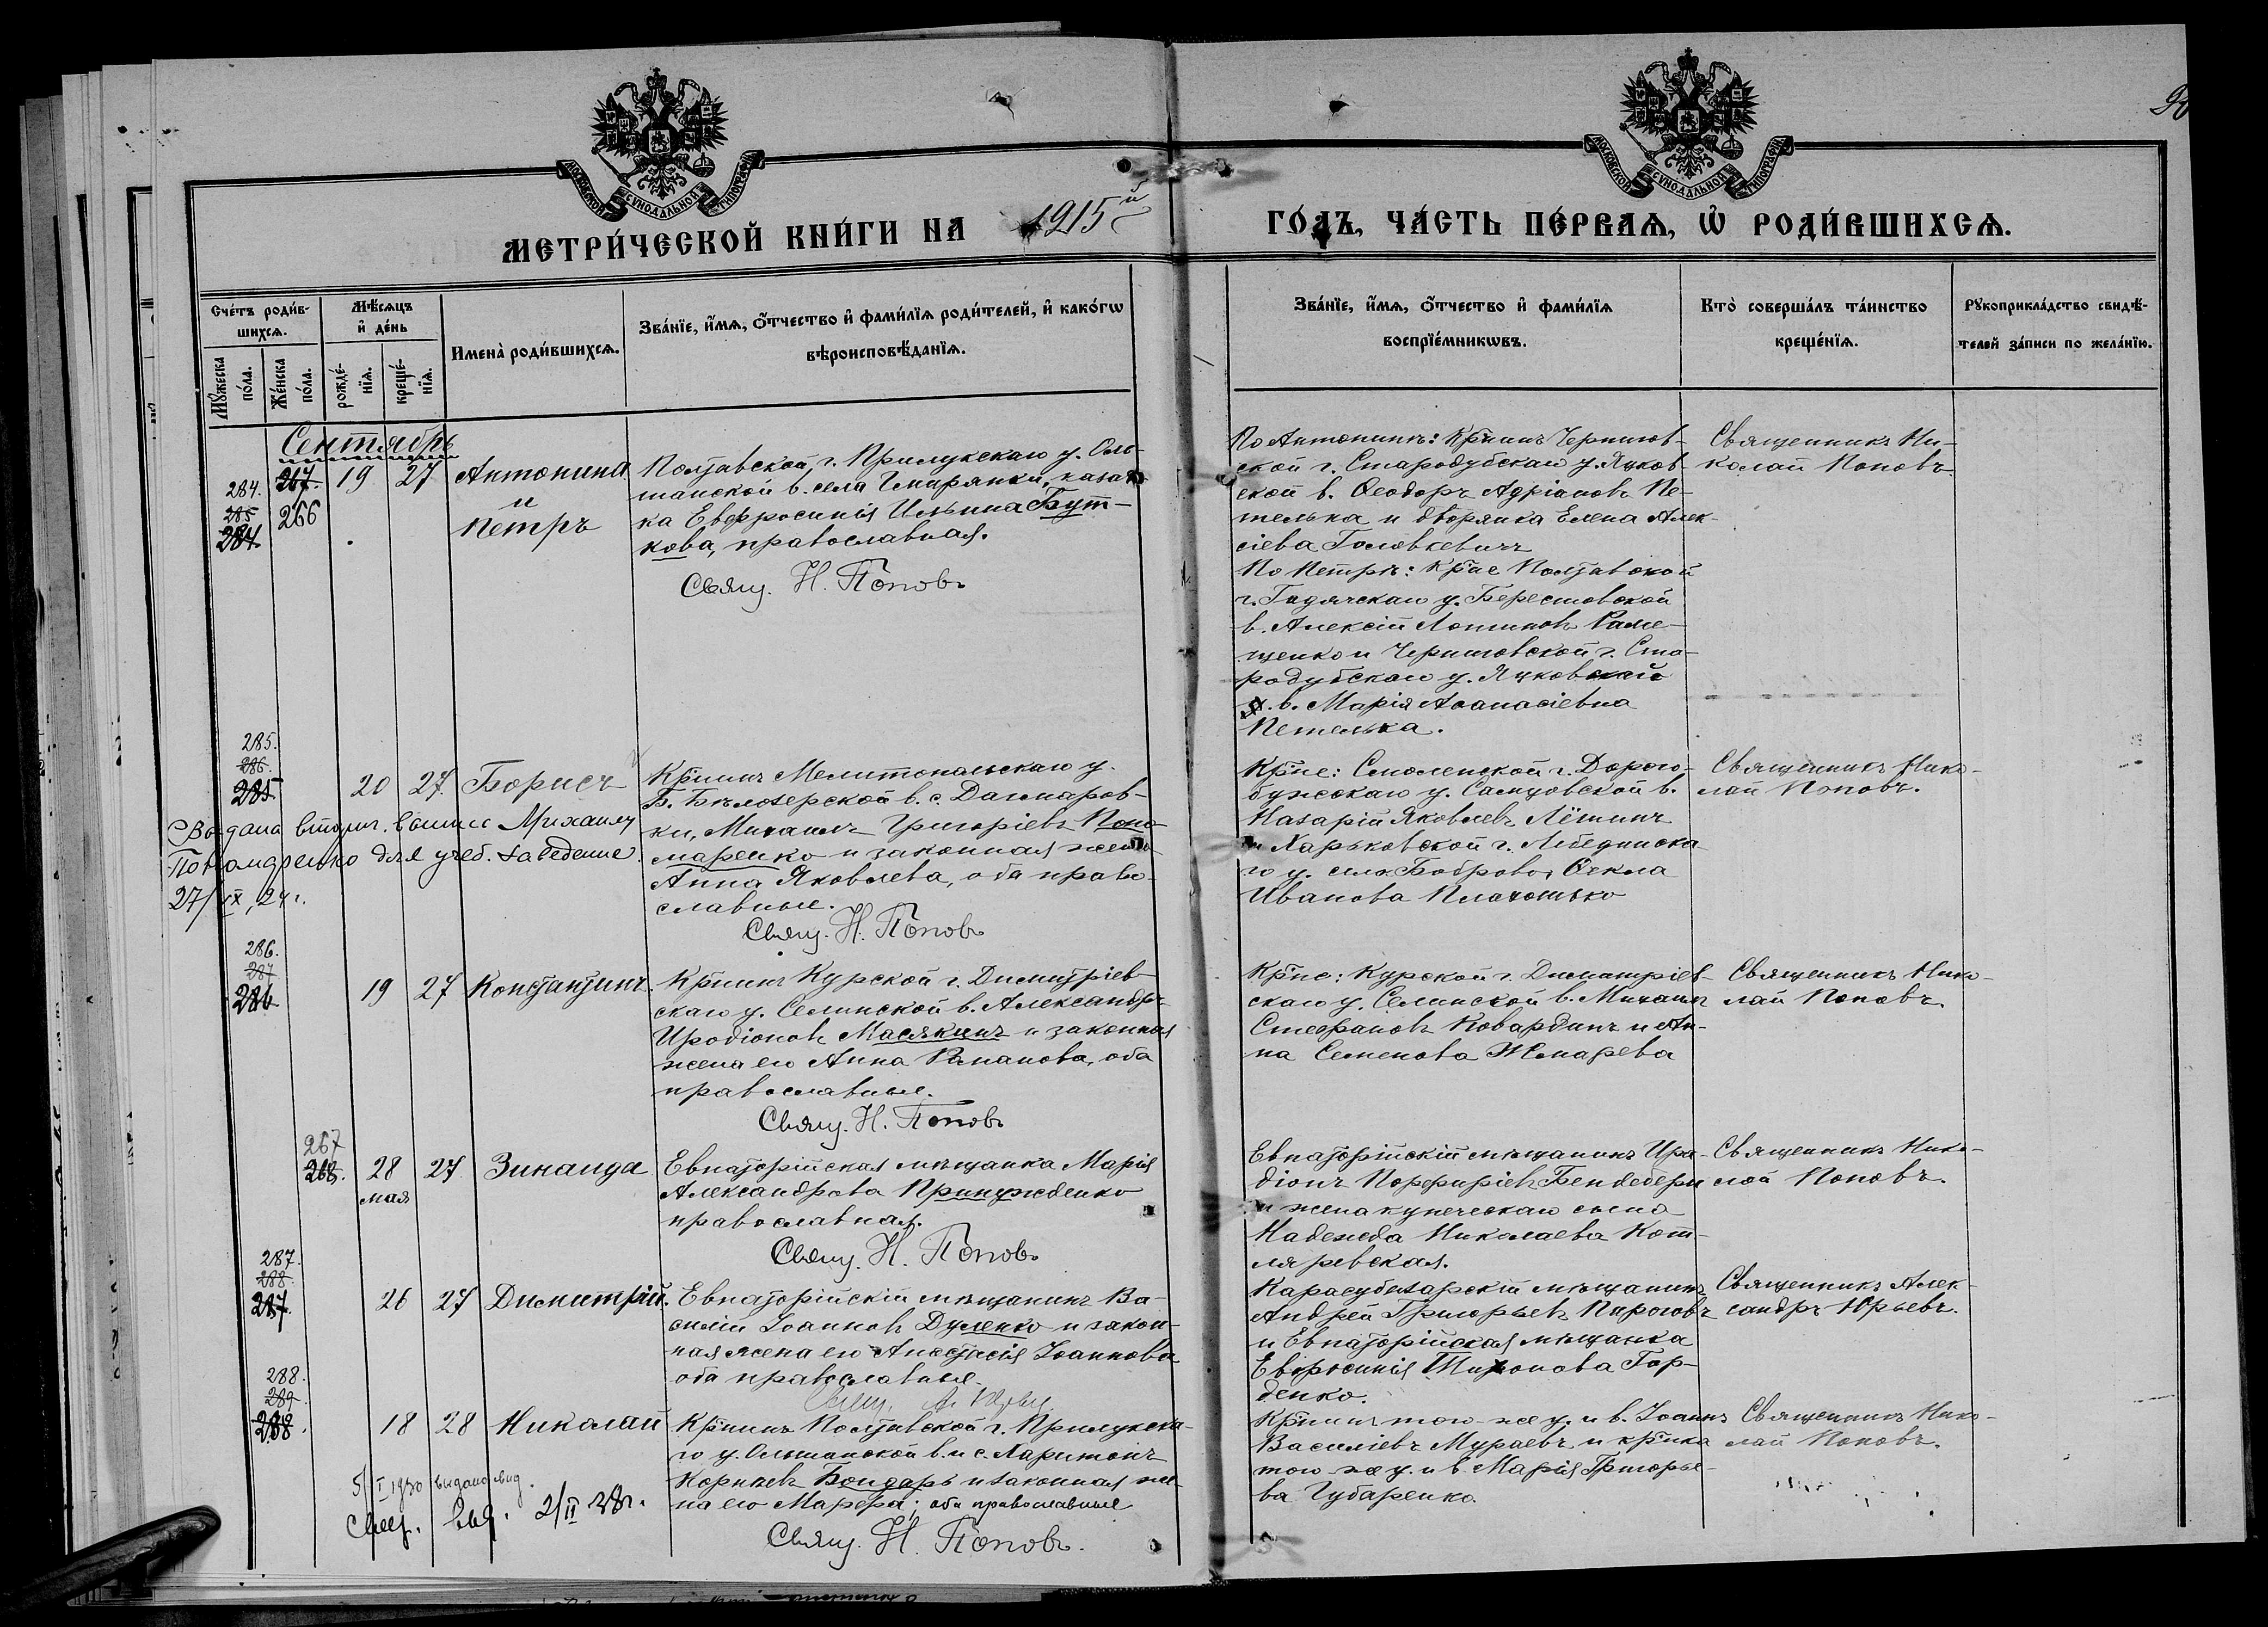 МОСКОВСКОЙ СѴНОДАЛЬНОЙ ТИПОГРАФІИ
МОСКОВСКОЙ СѴНОДАЛЬНОЙ ТИПОГРАФІИ
МЕТРИ́ЧЕСКОЙ КНИ́ГИ НА 1915й
ГО́ДЪ, ЧА́СТЬ ПЕ́РВАѦ, Ѽ РОДИ́ВШИХСѦ.
Сче́тъ роди́в-
шихсѧ.
Мꙋ́жеска
по́ла.
Же́нска
по́ла.
Мѣ́сѧцъ
и҆ де́нь
рожде́-
нїѧ.
креще́-
нїѧ.
Имена̀ роди́вшихсѧ.
Зва́нїе, и҆́мѧ, ѻ҆́тчество и҆ фами́лїѧ роди́телей, и҆ како́гѡ
вѣроисповѣ́данїѧ.
Зва́нїе, и҆́мѧ, ѻ҆́тчество и҆ фами́лїѧ
воспрїе́мникѡвъ.
Кто̀ соверша́лъ та́инство
креще́нїѧ.
Рꙋкоприкла́дство свидѣ́-
телей за́писи по жела́нїю.
Сентябрь
284. 267. 19 27 Антонина
285 266
284
и
Петръ
Полтавской г. Прилукскаго у. Оль-
шанской в. села Гмирянки, казач-
ка Евфросинія Ильина Бут-
кова, православная.
Свящ. Н. Поповъ
По Антонинѣ: Кр̃нинъ Чернигов-
ской г. Стародубскаго у. Яцков-
ской в. Ѳеодоръ Адріановъ Пе-
телька и дворянка Елена Алек-
сіева Головкевичъ
По Петрѣ: кр̃не Полтавской
г. Гадячскаго у. Берестовской
в. Алексій Логиновъ Раме-
щенко и Черниговской г. Ста-
родубскаго у. Яцковской
в. Марія Аѳанасіевна
Петелька.
Священникъ Ни-
колай Поповъ
285.
286.
285 20 27 Борисъ
Кр̃нинъ Мелитопольскаго у.
Б. Бѣлозерской в. с. Дагмаров-
ки, Михаилъ Григоріевъ Поно-
маренко и законная жена
Анна Яковлева, оба право-
славные.
Свящ. Н. Поповъ
Выдана вторич. выпис Михаилу
Пономаренко для учеб. заведение.
27/IX, 24 г.
Кр̃не: Смоленской г. Дорого-
бужскаго у. Самцовской в.
Назарій Яковлевъ Лёшинъ
и Харьковской г. Лебединска-
го у. села Боброво, Ѳекла
Иванова Плахотько
Священникъ Нико-
лай Поповъ.
286.
287
286 19 27 Константинъ.
Кр̃нинъ Курской г. Димитріев-
скаго у. Селинской в. Александръ
Иродіоновъ Маслакинъ и законная
жена его Анна Романова, оба
православные.
Свящ. Н. Поповъ
Кр̃не: Курской г. Димитріев-
скаго у. Селинской в. Михаилъ
Стефановъ Ковардинъ и Ан-
на Семенова Жмарева
Священникъ Нико-
лай Поповъ.
267
268. 28 27 Зинаида
мая
Евпаторійская мѣщанка Марія
Александрова Принужденко
православная.
Свящ. Н. Поповъ
Евпаторійскій мѣщанинъ Ира-
діонъ Порфиріевъ Бендебери
и жена купеческаго сына
Надежда Николаева Кот-
ляревская.
Священникъ Нико-
лай Поповъ.
287.
288.
287. 26 27 Димитрій.
Евпаторійскій мѣщанинъ Ва-
силій Іоанновъ Дуленко и закон-
ная жена его Анастасія Іоаннова
оба православные.
Свящ. А. Юрьевъ
Карасубазарскій мѣщанинъ
Андрей Григорьевъ Пироговъ
и Евпаторійская мѣщанка
Евфросинія Тихонова Гор-
денко.
Священникъ Алек-
сандръ Юрьевъ.
288.
289.
288. 18 28 Николай
Кр̃нинъ Полтавской г. Прилукска-
го у. Ольшанской в. и с. Харитонъ
Корніевъ Бондарь и законная же-
на его Марфа; оба православные
Свящ. Н. Поповъ.
5/I 1930 выдано свид.
2/II 28г.
Кр̃нинъ того-же у. и в. Іоаннъ
Василіевъ Мураевъ и кр̃нка
того же у. и в. Марія Григорье-
ва Губаренко.
Священникъ Нико-
лай Поповъ.